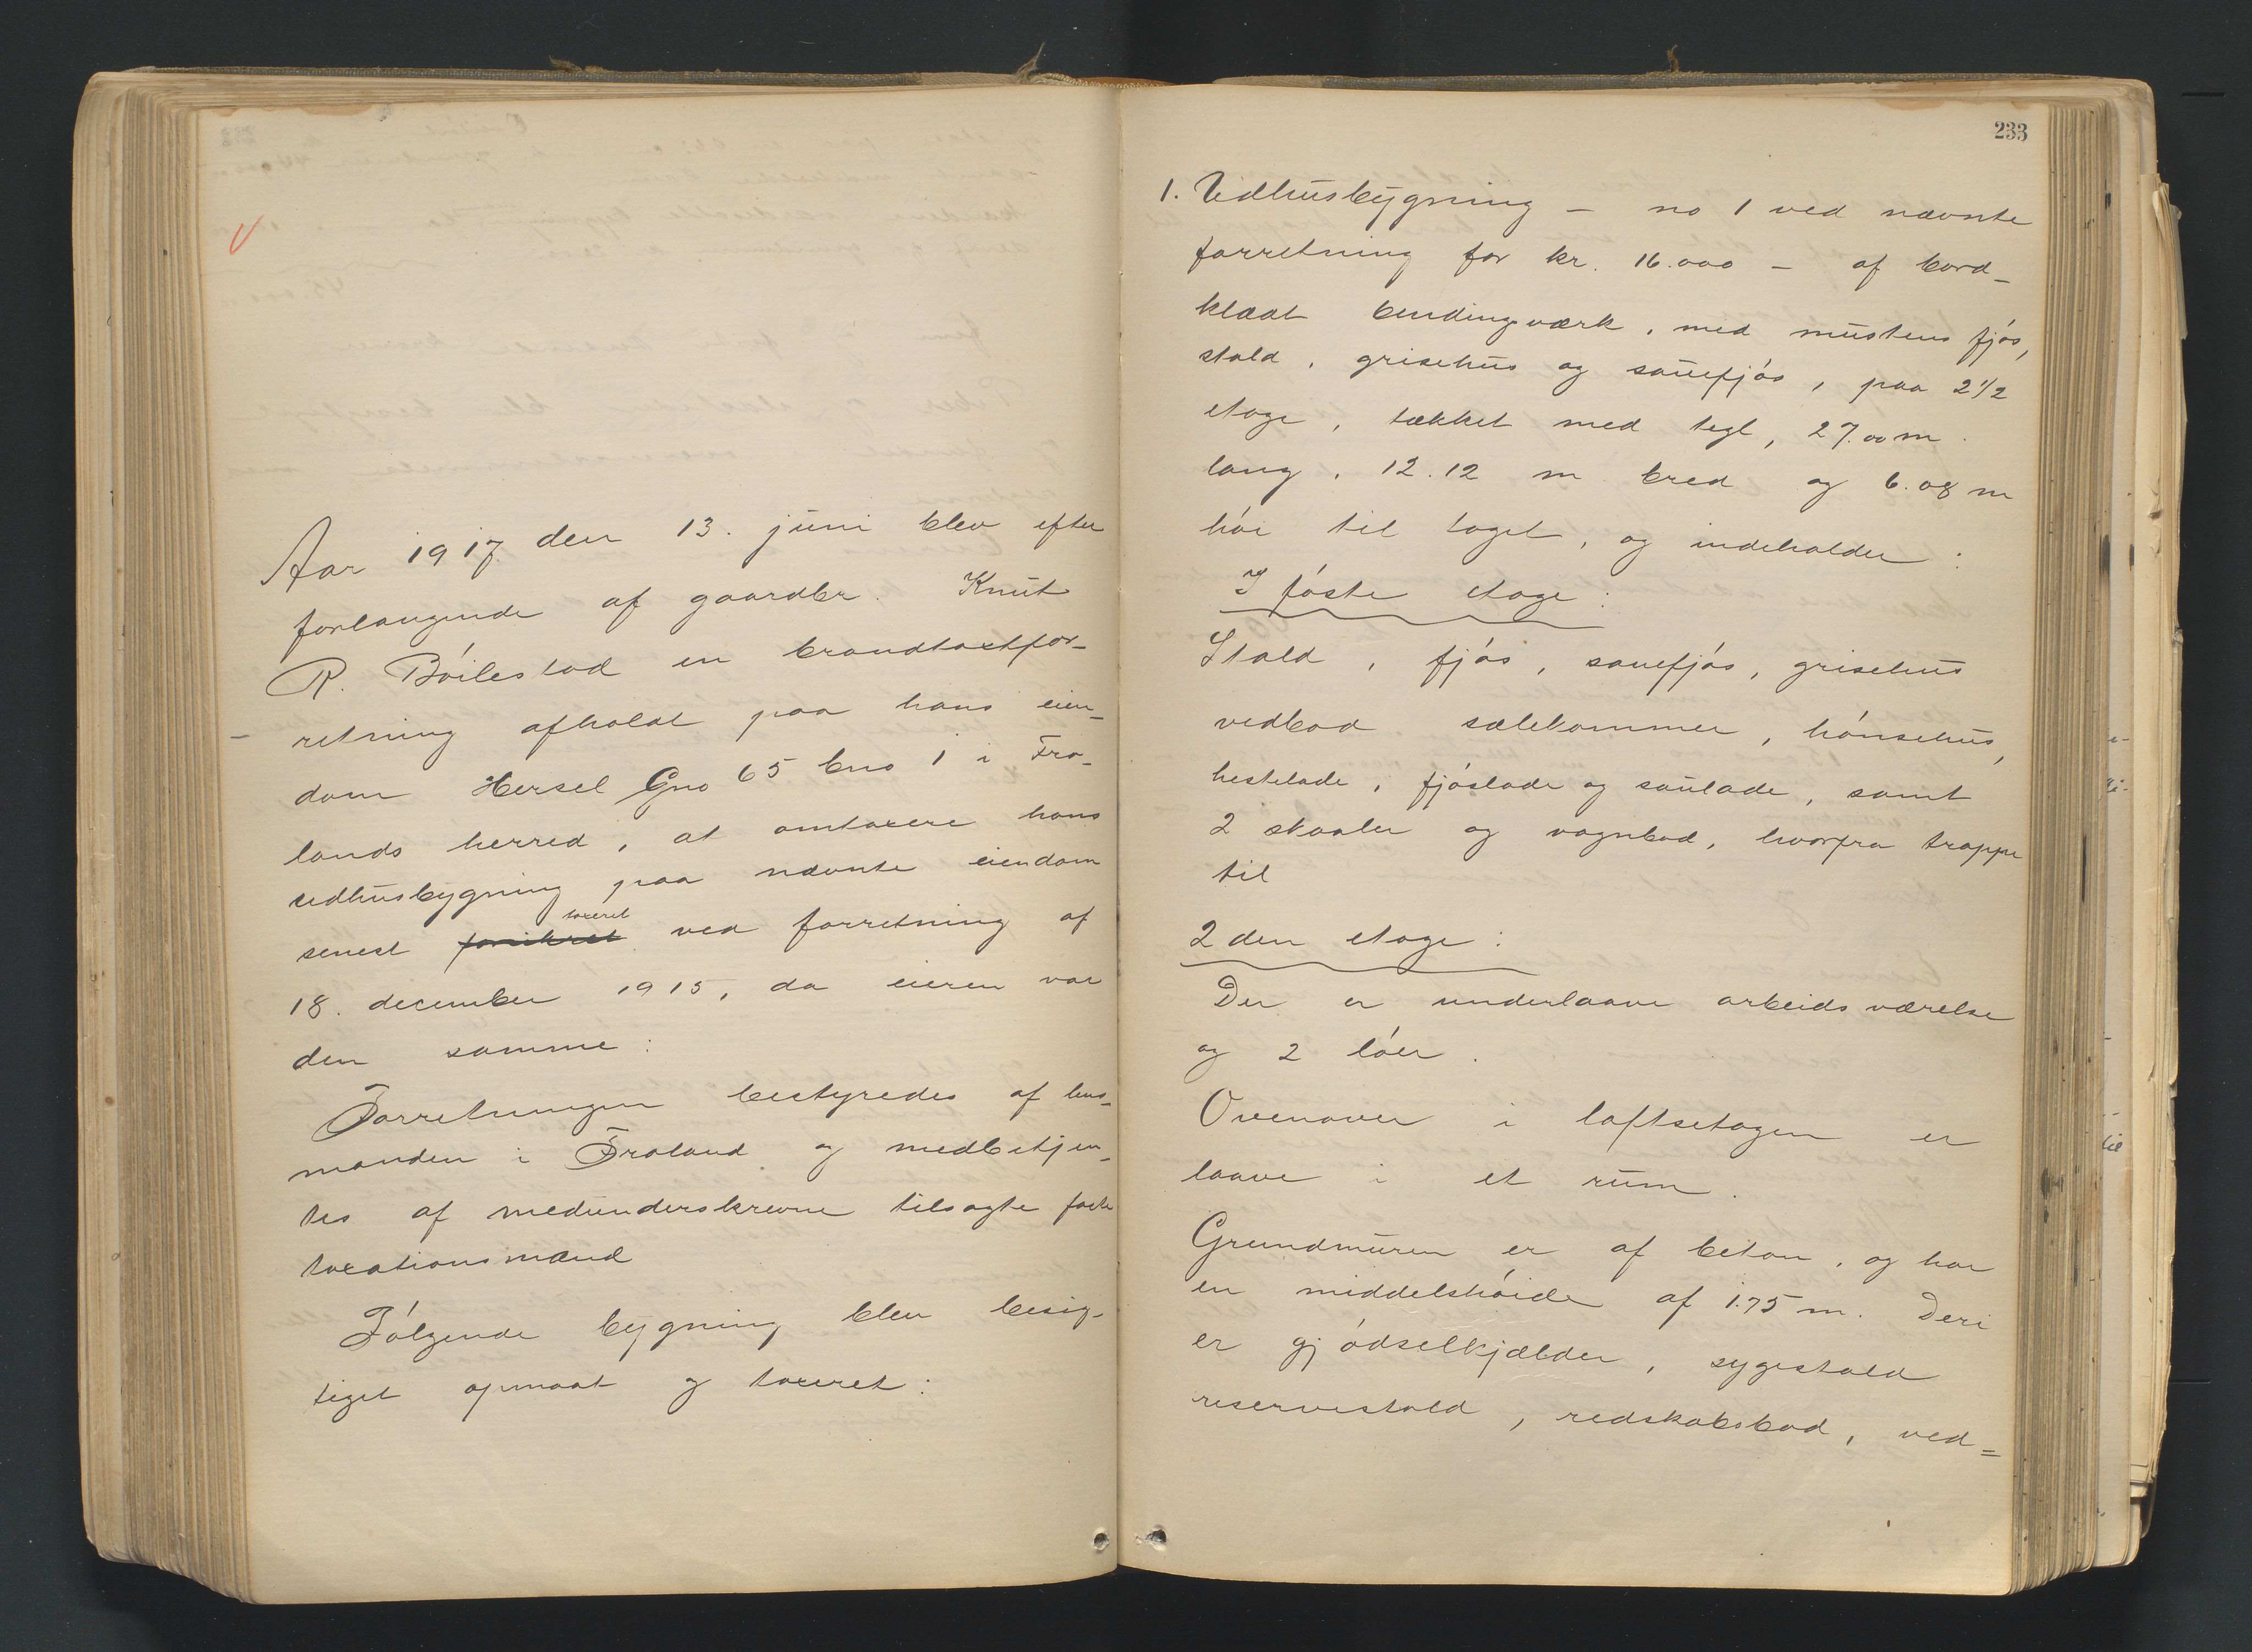 Aar 1917 den 13. juni blev efter
forlangende af gaardbr. Knut
R. Böilestad en brandtaxtfor-
retning afholdt paa hans eien-
dom Hersel Gno 65 bno 1 i Fro-
lands herred, at omtaxere hans
udhusbygning paa nævnte eiendom
taxeret
senest ved forretning af
18. december 1915, da eieren var
den samme:
Forretningen bestyredes af lens-
manden i Froland og medbetjen-
tes af medunderskrevne tilsagte faste
taxationsmænd
Følgende bygning blev besig-
tiget opmaat og taxeret:
233
1. Udhusbygning – no 1 ved nævnte
forretning for kr. 16.000 – af bord-
klædt bindingsværk, med mustens fjös,
stald, grisehus og sauefjös, paa 2 1/2
etage, tækket med tegl, 27.00 m.
lang, 12.12 m bred og 6.08 m
höi til taget, og indeholder:
I föste etage:
Stald, fjös, sauefjös, grisehus
vedbod sælekammer, hönsehus,
hestelade, fjöslade og saulade, samt
2 skaaler og vognbod, hvorfra trappe
til
2den etage:
Der er underlaave arbeidsværelse
og 2 löer.
Ovenover i loftsetagen er
laave i et rum.
Grundmuren er af beton, og har
en middelshöide af 1.75 m. Deri
er gjödselkjælder, sygestald
reservestald, redskabsbod, ved=